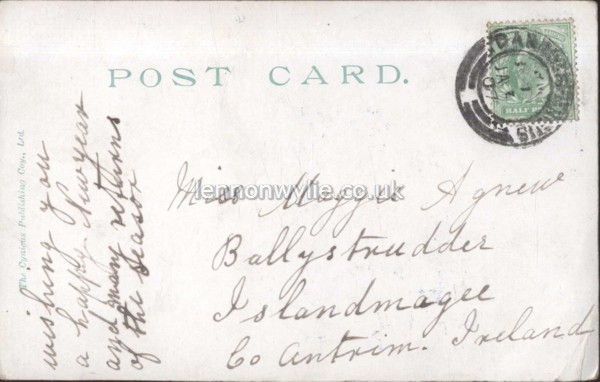 POST CARD.
HALF
The Cynicus Publishing Coy., Ltd.
wishing you
a happy New year
and many returns
of the season
Miss Maggie Agnew
Ballystrudder
Islandmagee
Co Antrim. Ireland
lemonwylie.co.uk